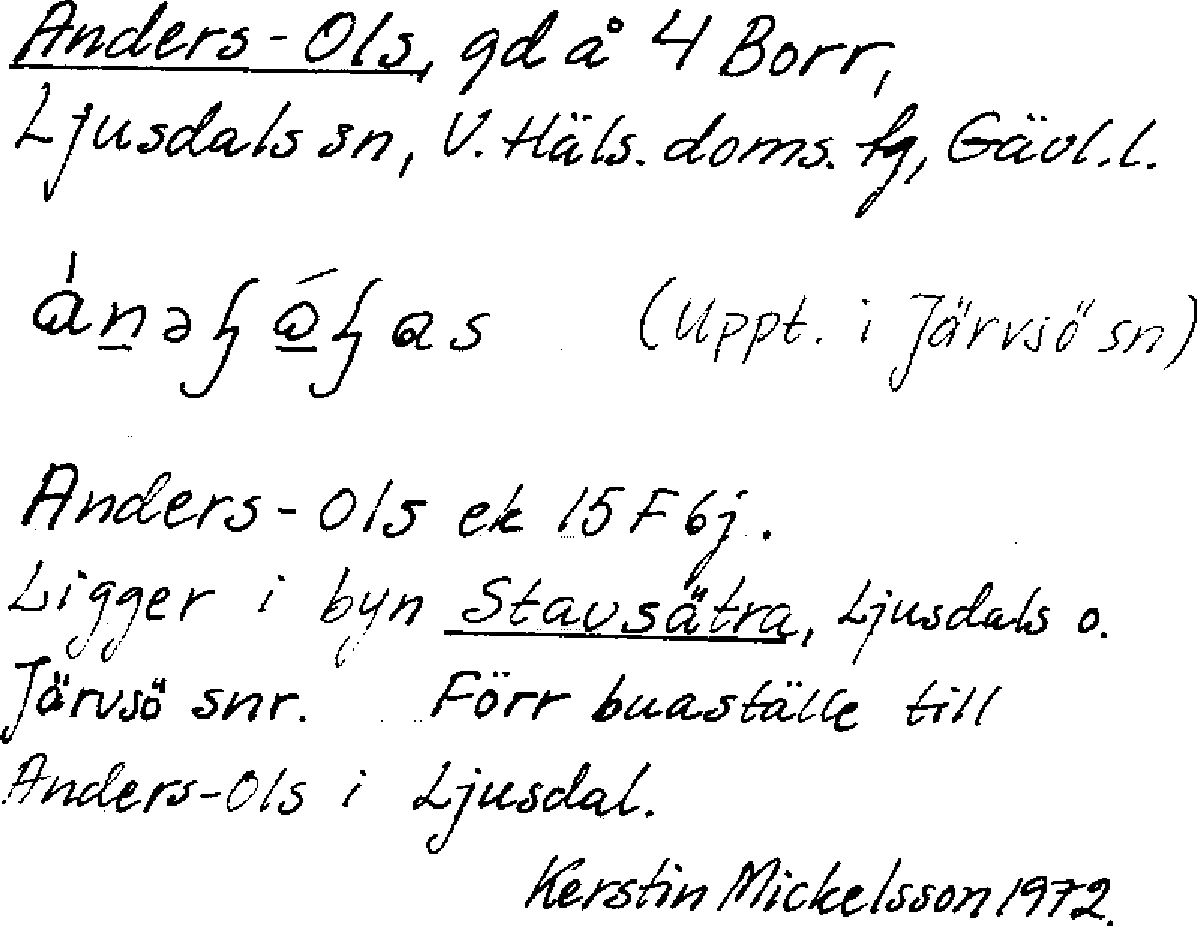 Anders-Ols, gd å 4 Borr,
Ljusdals sn, V. Häls. doms. fg, Gävl. l.
(Uppt. i Järvsö sn)
Anders-Ols ek 15 F 6j.
Ligger i byn Stavsätra, Ljusdals o.
Järvsö snr. Förr buaställe till
Anders-Ols i Ljusdal.
Kerstin Mickelsson 1972.